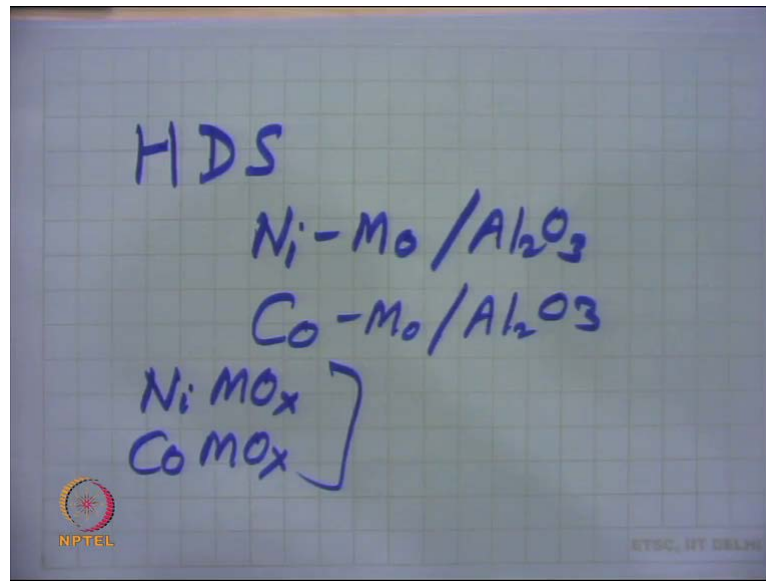 HDS
Ni-Mo/Al2O3
Co-Mo/Al2O3
Ni MOx
Co MOx
NPTEL
ETSC, IIT DELHI